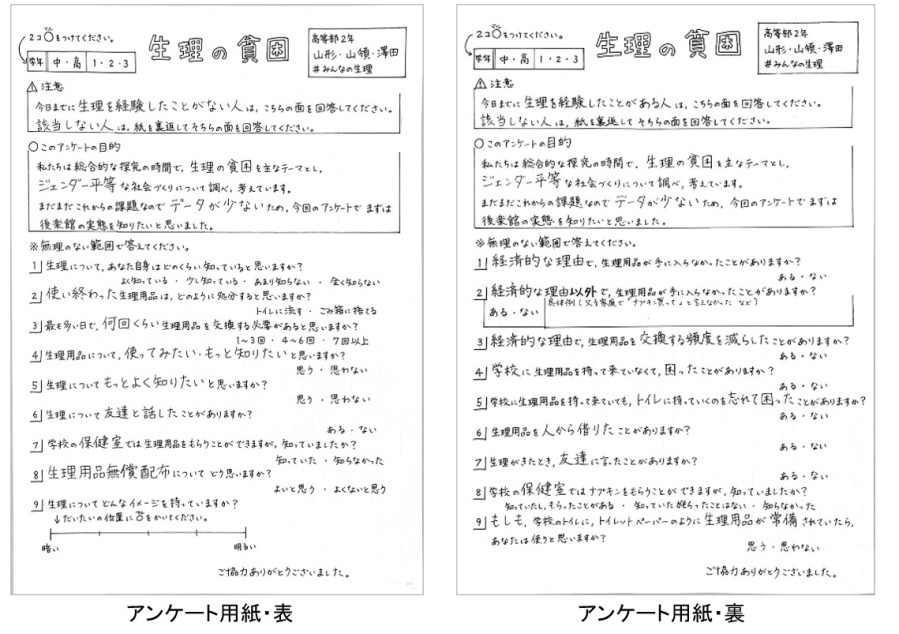 マル
2コ○をつけてください。
学年 中・高 1・2・3
生理の貧困
高等部2年
山形・山領・澤田
#みんなの生理
注意
今日までに生理を経験したことがない人は、こちらの面を回答してください。
該当しない人は、紙を裏返してそちらの面を回答してください。
○このアンケートの目的
私たちは総合的な探究の時間で、生理の貧困を主なテーマとし、
ジェンダー平等な社会づくりについて調べ、考えています。
まだまだこれからの課題なのでデータが少ないため、今回のアンケートでまずは
後楽館の実態を知りたいと思いました。
※無理のない範囲で答えてください。
1 生理について、あなた自身はどのくらい知っていると思いますか?
よく知っている・少し知っている・あまり知らない・全く知らない
2 使い終わった生理用品は、どのように処分すると思いますか?
トイレに流す・ごみ箱に捨てる
3 最も多い日で、何回くらい生理用品を交換する必要があると思いますか?
1〜3回・4〜6回・7回以上
4 生理用品について、使ってみたい・もっと知りたいと思いますか?
思う・思わない
5 生理についてもっとよく知りたいと思いますか?
思う・思わない
6 生理について友達と話したことがありますか?
ある・ない
7 学校の保健室では生理用品をもらうことができますが、知っていましたか?
知っていた・知らなかった
8 生理用品無償配布についてどう思いますか?
よいと思う・よくないと思う
9 生理についてどんなイメージを持っていますか?
↓だいたいの位置に をかいてください。
暗い 明るい
ご協力ありがとうございました。
アンケート用紙・表
マル
2コ○をつけてください。
学年 中・高 1・2・3
生理の貧困
高等部2年
山形・山領・澤田
#みんなの生理
注意
今日までに生理を経験したことがある人は、こちらの面を回答してください。
該当しない人は、紙を裏返してそちらの面を回答してください。
○このアンケートの目的
私たちは総合的な探究の時間で、生理の貧困を主なテーマとし、
ジェンダー平等な社会づくりについて調べ、考えています。
まだまだこれからの課題なのでデータが少ないため、今回のアンケートでまずは
後楽館の実態を知りたいと思いました。
※無理のない範囲で答えてください。
1 経済的な理由で、生理用品が手に入らなかったことがありますか?
ある・ない
2 経済的な理由以外で、生理用品が手に入らなかったことがありますか?
ある・ない 具体例(父子家庭で「ナプキン買って」と言えなかった など)
3 経済的な理由で、生理用品を交換する頻度を減らしたことがありますか?
ある・ない
4 学校に生理用品を持って来ていなくて、困ったことがありますか?
ある・ない
5 学校に生理用品を持って来ていても、トイレに持っていくのを忘れて困ったことがありますか?
ある・ない
6 生理用品を人から借りたことがありますか?
ある・ない
7 生理がきたとき、友達に言ったことがありますか?
ある・ない
8 学校の保健室ではナプキンをもらうことができますが、知っていましたか?
知っていたし、もらったことがある・知っていたがもらったことはない・知らなかった
9 もしも、学校のトイレに、トイレットペーパーのように生理用品が常備されていたら、
あなたは使うと思いますか?
思う・思わない
ご協力ありがとうございました。
アンケート用紙・裏